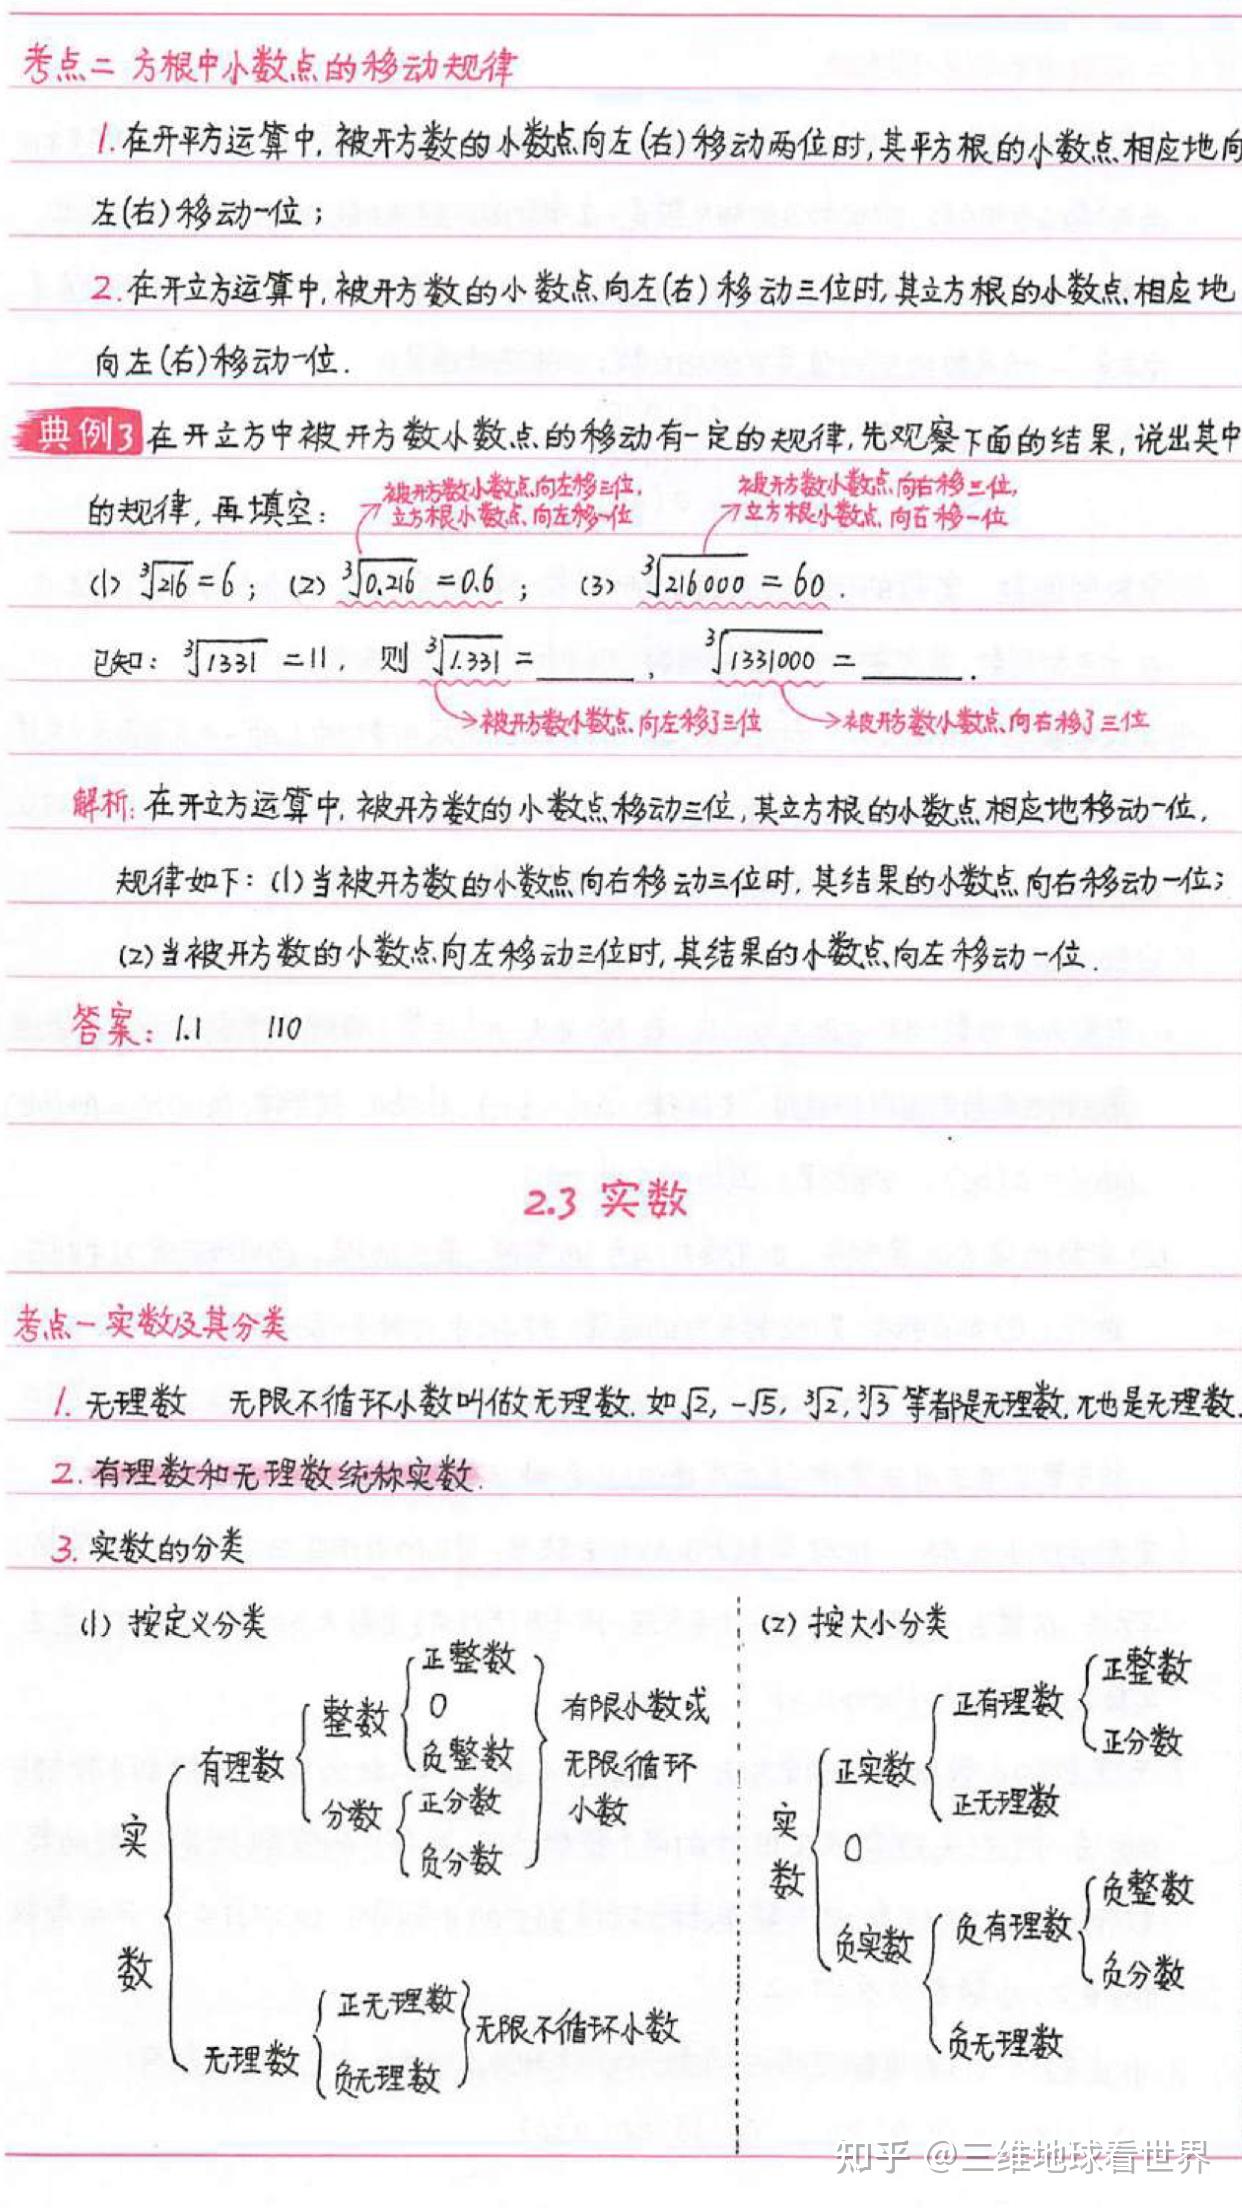 考点二 方根中小数点的移动规律
1.在开平方运算中,被开方数的小数点向左(右)移动两位时,其平方根的小数点相应地向
左(右)移动一位;
2.在开立方运算中,被开方数的小数点向左(右)移动三位时,其立方根的小数点相应地
向左(右)移动一位.
典例3 在开立方中被开方数小数点的移动有一定的规律,先观察下面的结果,说出其中
被开方数小数点向左移三位, 被开方数小数点向右移三位,
的规律,再填空: 立方根小数点向左移一位 立方根小数点向右移一位
(1) ³√216=6; (2) ³√0.216=0.6; (3) ³√216000=60.
已知: ³√1331=11, 则 ³√1.331=____, ³√1331000=____.
被开方数小数点向左移了三位 被开方数小数点向右移了三位
解析:在开立方运算中,被开方数的小数点移动三位,其立方根的小数点相应地移动一位,
规律如下:(1)当被开方数的小数点向右移动三位时,其结果的小数点向右移动一位;
(2)当被开方数的小数点向左移动三位时,其结果的小数点向左移动一位.
答案: 1.1 110
2.3 实数
考点一 实数及其分类
1.无理数 无限不循环小数叫做无理数.如√2,-√5,³√2,³√3等都是无理数,π也是无理数.
2.有理数和无理数统称实数.
3.实数的分类
(1)按定义分类
实数
有理数
整数
正整数
0
负整数
分数
正分数
负分数
有限小数或
无限循环
小数
无理数
正无理数
负无理数
无限不循环小数
(2)按大小分类
实数
正实数
正有理数
正整数
正分数
正无理数
0
负实数
负有理数
负整数
负分数
负无理数
知乎 @三维地球看世界